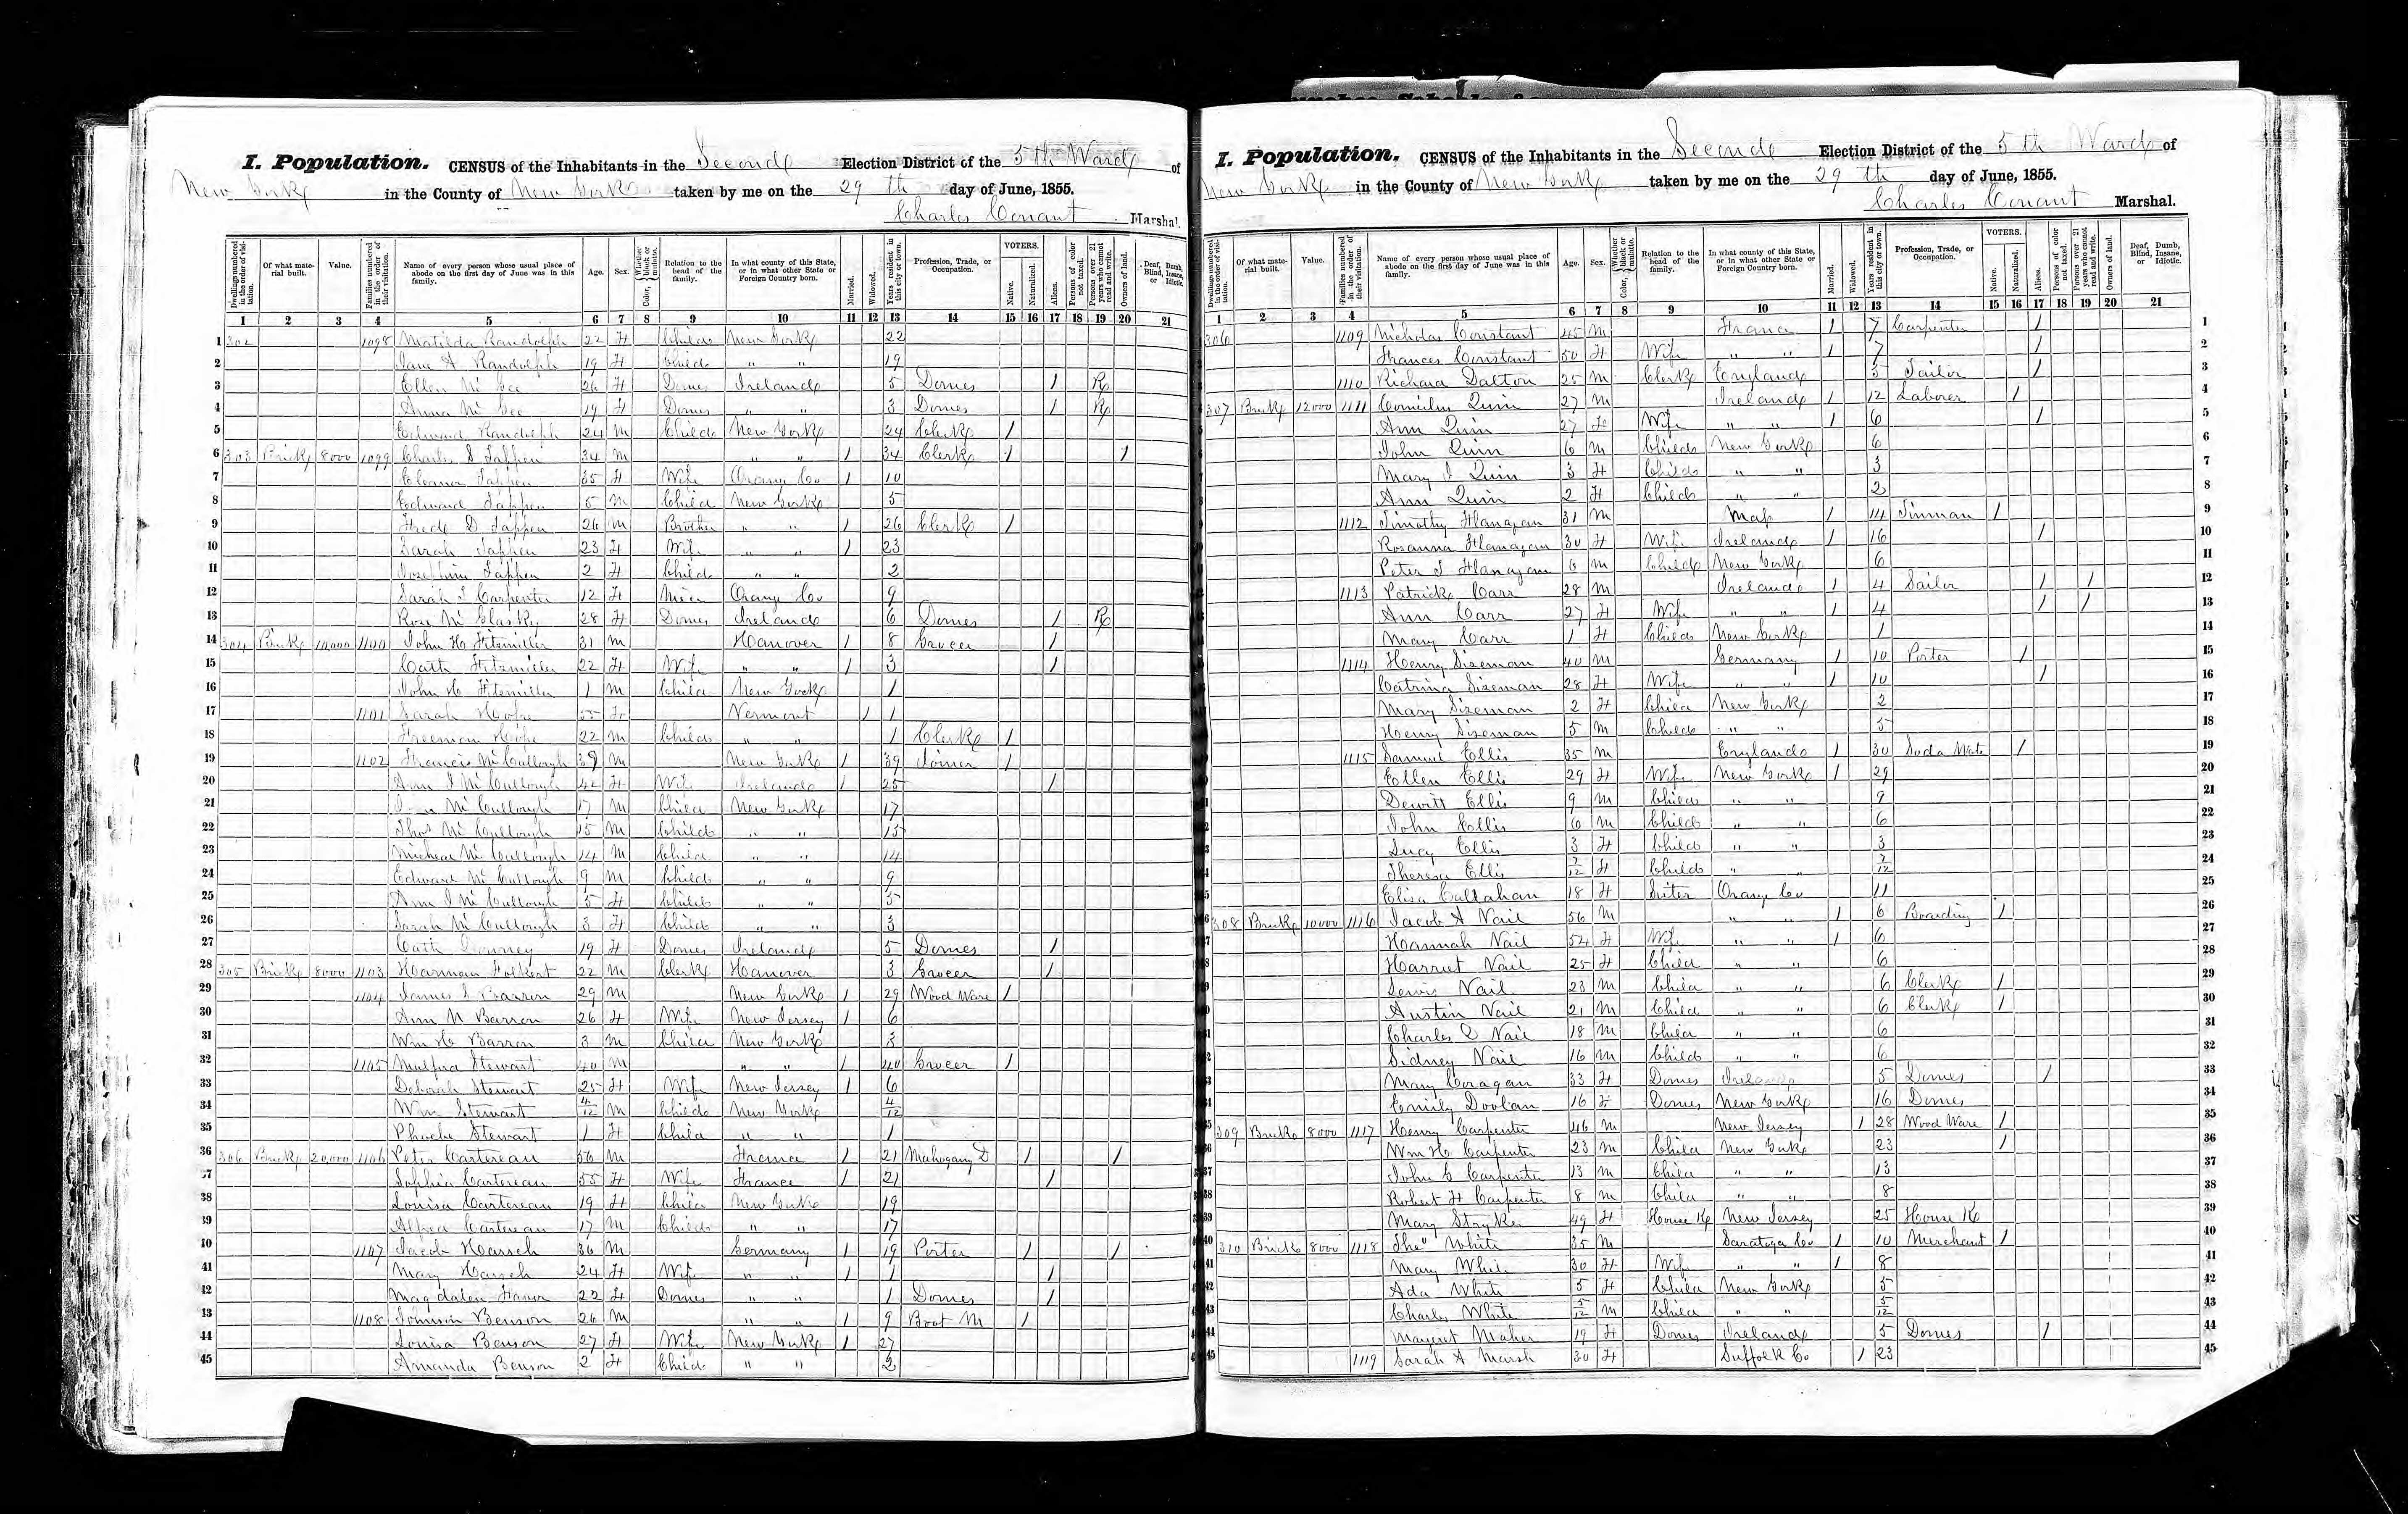 I. Population. CENSUS of the Inhabitants in the Second Election District of the 5th Ward of
New York in the County of New York taken by me on the 29th day of June, 1855.
Charles Conant Marshal.
Dwellings numbered in the order of visitation. Of what material built. Value. Families numbered in the order of their visitation. Name of every person whose usual place of abode on the first day of June was in this family. Age. Sex. Color, Whether black or mulatto. Relation to the head of the family. In what county of this State, or in what other State or Foreign Country born. Married. Widowed. Years resident in this city or town. Profession, Trade, or Occupation. VOTERS. Native. Naturalized. Aliens. Persons of color not taxed. Persons over 21 years who cannot read and write. Owners of land. Deaf, Dumb, Blind, Insane, or Idiotic.
1 2 3 4 5 6 7 8 9 10 11 12 13 14 15 16 17 18 19 20 21
1 302 1098 Matilda Randolph 22 F Child New York 22
2 Jane A Randolph 19 F Child " " 19
3 Ellen Mc Gee 26 F Domes Ireland 5 Domes 1 R
4 Anna Mc Gee 19 F Domes " " 3 Domes 1 R
5 Edward Randolph 24 M Child New York 24 Clerk 1
6 303 Brick 8000 1099 Charles S Tappen 34 M " " 1 34 Clerk 1 1
7 Eleanor Tappen 35 F Wife Orange Co 1 10
8 Edward Tappen 5 M Child New York 5
9 Fredc D Tappen 26 M Brother " " 1 26 Clerk 1
10 Sarah Tappen 23 F Wife " " 1 23
11 Josephine Tappen 2 F Child " " 2
12 Sarah J Carpenter 12 F Niece Orange Co 9
13 Rose Mc Glasky 28 F Domes Ireland 6 Domes 1 R
14 304 Brick 10,000 1100 John H Fitzmiller 31 M Hanover 1 8 Grocer 1
15 Cath Fitzmiller 22 F Wife " " 1 3 1
16 John H Fitzmiller 1 M Child New York 1
17 1101 Sarah 55 F Vermont 1 1
18 Freeman 22 M Child " " 1 Clerk 1
19 1102 Francis McCullough 39 M New York 1 39 Joiner 1
20 Ann J McCullough 42 F Wife Ireland 1 25 1
21 McCullough 17 M Child New York 17
22 Thos McCullough 15 M Child " " 15
23 Michael McCullough 14 M Child " " 14
24 Edward McCullough 9 M Child " " 9
25 Ann J McCullough 5 F Child " " 5
26 Sarah McCullough 3 F Child " " 3
27 Cath 19 F Domes Ireland 5 Domes 1
28 305 Brick 8000 1103 Harman Folkert 22 M Clerk Hanover 3 Grocer 1
29 1104 James L Barron 29 M New York 1 29 Wood Ware 1
30 Ann N Barron 26 F Wife New Jersey 1 6
31 Wm H Barron 3 M Child New York 3
32 1105 Mulford Stewart 40 M " " 1 40 Grocer 1
33 Deborah Stewart 25 F Wife New Jersey 1 6
34 Wm Stewart 4/12 M Child New York 4/12
35 Phoebe Stewart 1 F Child " " 1
36 306 Brick 20,000 1106 Peter Cartereau 56 M France 1 21 Mahogany D 1 1
37 Sophia Cartereau 55 F Wife France 1 21 1
38 Louisa Cartereau 19 F Child New York 19
39 Alfred Cartereau 17 M Child " " 17
40 1107 Jacob Harsch 36 M Germany 1 19 Porter 1 1
41 Mary Harsch 24 F Wife " " 1 1 1
42 Magdalen Favor 22 F Domes " " 1 Domes 1
43 1108 Benson 26 M " " 1 9 Boot M 1
44 Louisa Benson 27 F Wife New York 1 27
45 Amanda Benson 2 F Child " " 2
I. Population. CENSUS of the Inhabitants in the Second Election District of the 5th Ward of
New York in the County of New York taken by me on the 29th day of June, 1855.
Charles Conant Marshal.
Dwellings numbered in the order of visitation. Of what material built. Value. Families numbered in the order of their visitation. Name of every person whose usual place of abode on the first day of June was in this family. Age. Sex. Color, Whether black or mulatto. Relation to the head of the family. In what county of this State, or in what other State or Foreign Country born. Married. Widowed. Years resident in this city or town. Profession, Trade, or Occupation. VOTERS. Native. Naturalized. Aliens. Persons of color not taxed. Persons over 21 years who cannot read and write. Owners of land. Deaf, Dumb, Blind, Insane, or Idiotic.
1 2 3 4 5 6 7 8 9 10 11 12 13 14 15 16 17 18 19 20 21
306 1109 Nicholas Constant 45 M France 1 7 Carpenter 1 1
Frances Constant 50 F Wife " " 1 7 1 2
1110 Richard Dalton 25 M Clerk England 5 Tailor 1 3
307 Brick 12000 1111 Cornelius Quin 27 M Ireland 1 12 Laborer 1 4
Ann Quin 27 F Wife " " 1 6 1 5
John Quin 6 M Child New York 6 6
Mary J Quin 3 F Child " " 3 7
Ann Quin 2 F Child " " 2 8
1112 Timothy Flanagan 31 M Mass 1 14 Tinman 1 9
Rosanna Flanagan 30 F Wife Ireland 1 16 1 10
Peter J Flanagan 6 M Child New York 6 11
1113 Patrick Carr 28 M Ireland 1 4 Sailor 1 1 12
Ann Carr 27 F Wife " " 1 4 1 1 13
Mary Carr 1 F Child New York 1 14
1114 Henry Sizeman 40 M Germany 1 10 Porter 1 15
Catrina Sizeman 28 F Wife " " 1 10 1 16
Mary Sizeman 2 F Child New York 2 17
Henry Sizeman 5 M Child " " 5 18
1115 Samuel Ellis 35 M England 1 30 Soda Water 1 19
Ellen Ellis 29 F Wife New York 1 29 20
Dewitt Ellis 9 M Child " " 9 21
John Ellis 6 M Child " " 6 22
Lucy Ellis 3 F Child " " 3 23
Theresa Ellis 7/12 F Child " " 7/12 24
Eliza Callahan 18 F Sister Orange Co 11 25
308 Brick 10000 1116 Jacob A Nail 56 M " " 1 6 Boarding 1 26
Hannah Nail 54 F Wife " " 1 6 27
Harriet Nail 25 F Child " " 6 28
Lewis Nail 23 M Child " " 6 Clerk 1 29
Austin Nail 21 M Child " " 6 Clerk 1 30
Charles Q Nail 18 M Child " " 6 31
Sidney Nail 16 M Child " " 6 32
Mary Coragan 33 F Domes Ireland 5 Domes 1 33
Emily Doolan 16 F Domes New York 16 Domes 34
309 Brick 8000 1117 Henry Carpenter 46 M New Jersey 1 28 Wood Ware 1 35
Wm H Carpenter 23 M Child New York 23 1 36
John C Carpenter 13 M Child " " 13 37
Robert F Carpenter 8 M Child " " 8 38
Mary Stryker 49 F House K New Jersey 25 House K 39
310 Brick 8000 1118 Theo White 35 M Saratoga Co 1 10 Merchant 1 40
Mary White 30 F Wife " " 1 8 41
Ada White 5 F Child New York 5 42
Charles White 5/12 M Child " " 5/12 43
Margret Maher 19 F Domes Ireland 5 Domes 1 44
1119 Sarah A Marsh 30 F Suffolk Co 1 23 45